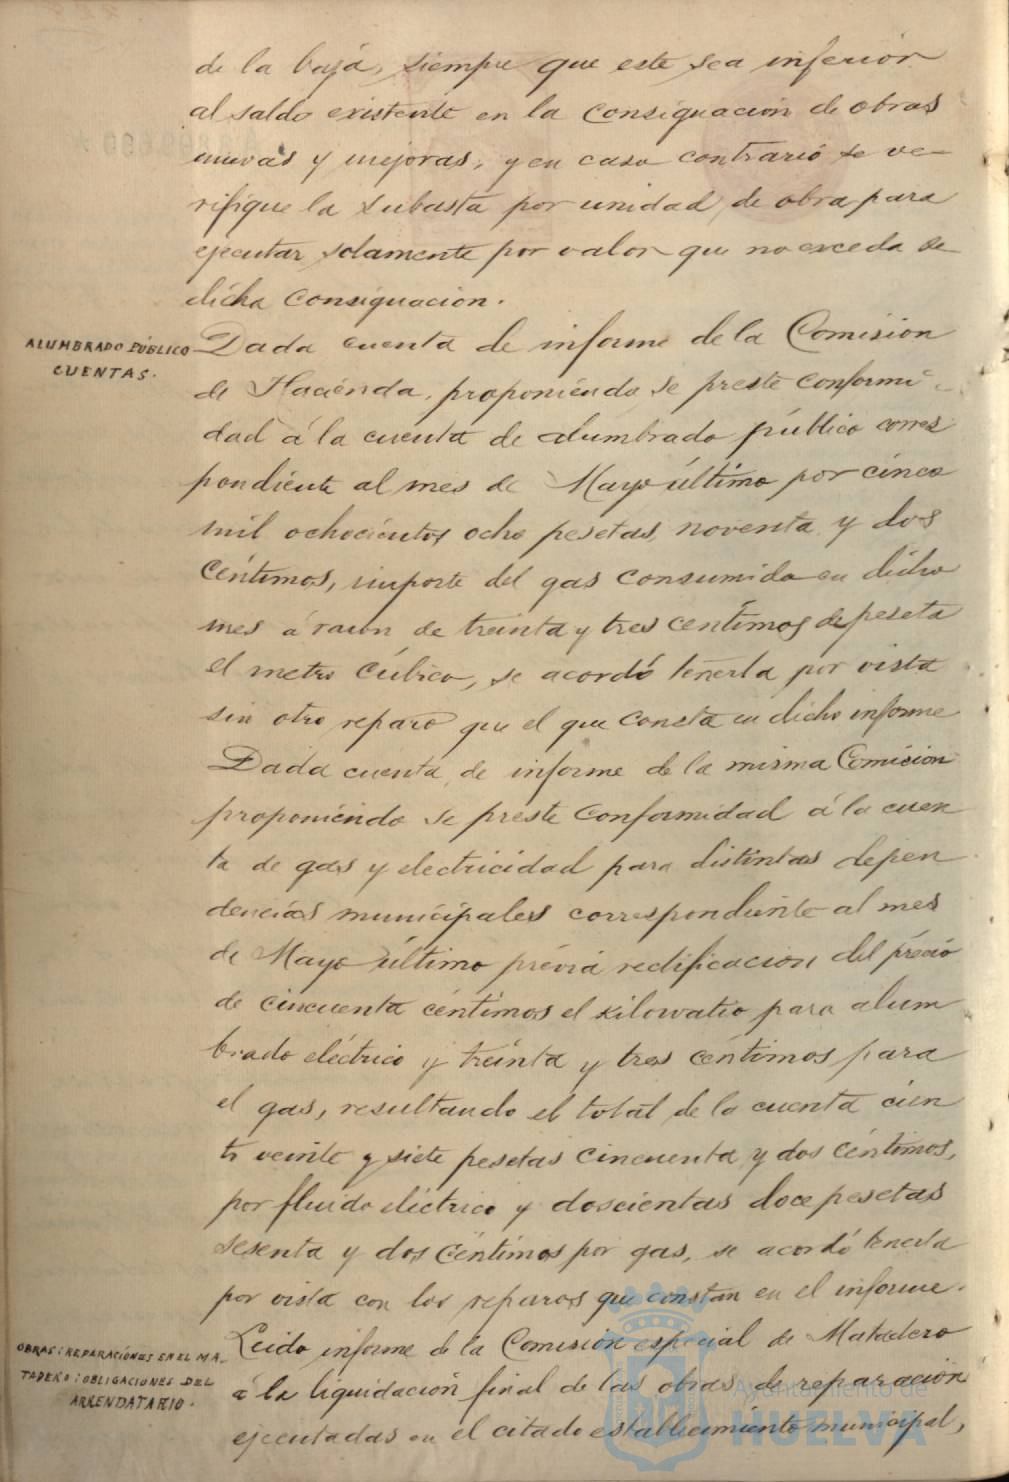 de la baja, siempre que este sea inferior
al saldo existente en la consignacion de obras
nuevas y mejoras, y en caso contrario se ve-
rifique la subasta por unidad de obra para
ejecutar solamente por valor que no exceda de
dicha consignacion.
ALUMBRADO PÚBLICO
CUENTAS.
Dada cuenta de informe de la Comision
de Hacienda, proponiendo se preste conformi-
dad á la cuenta de alumbrado público corres
pondiente al mes de Mayo último por cinco
mil ochocientos ocho pesetas, noventa y dos
céntimos, importe del gas consumido en dicho
mes á razon de treinta y tres centimos de peseta
el metro cúbico, se acordó tenerla por vista
sin otro reparo que el que consta en dicho informe
Dada cuenta de informe de la misma Comision
proponiendo se preste conformidad á la cuen
ta de gas y electricidad para distintas depen
dencias municipales correspondiente al mes
de Mayo último prévia rectificacion del précio
de cincuenta céntimos el kilowatio para alum
brado eléctrico y treinta y tres céntimos para
el gas, resultando el total de la cuenta cien
to veinte y siete pesetas cincuenta y dos céntimos,
por fluido eléctrico y doscientas doce pesetas
sesenta y dos céntimos por gas, se acordó tenerla
por vista con los reparos que constan en el informe.
OBRAS: REPARACIÓNES EN EL MA-
TADERO: OBLIGACIONES DEL
ARRENDATARIO.
Leido informe de la Comision especial de Matadero
á la liquidación final de las obras de reparación
ejecutadas en el citado establecimiento municipal,
Ayuntamiento de
HUELVA